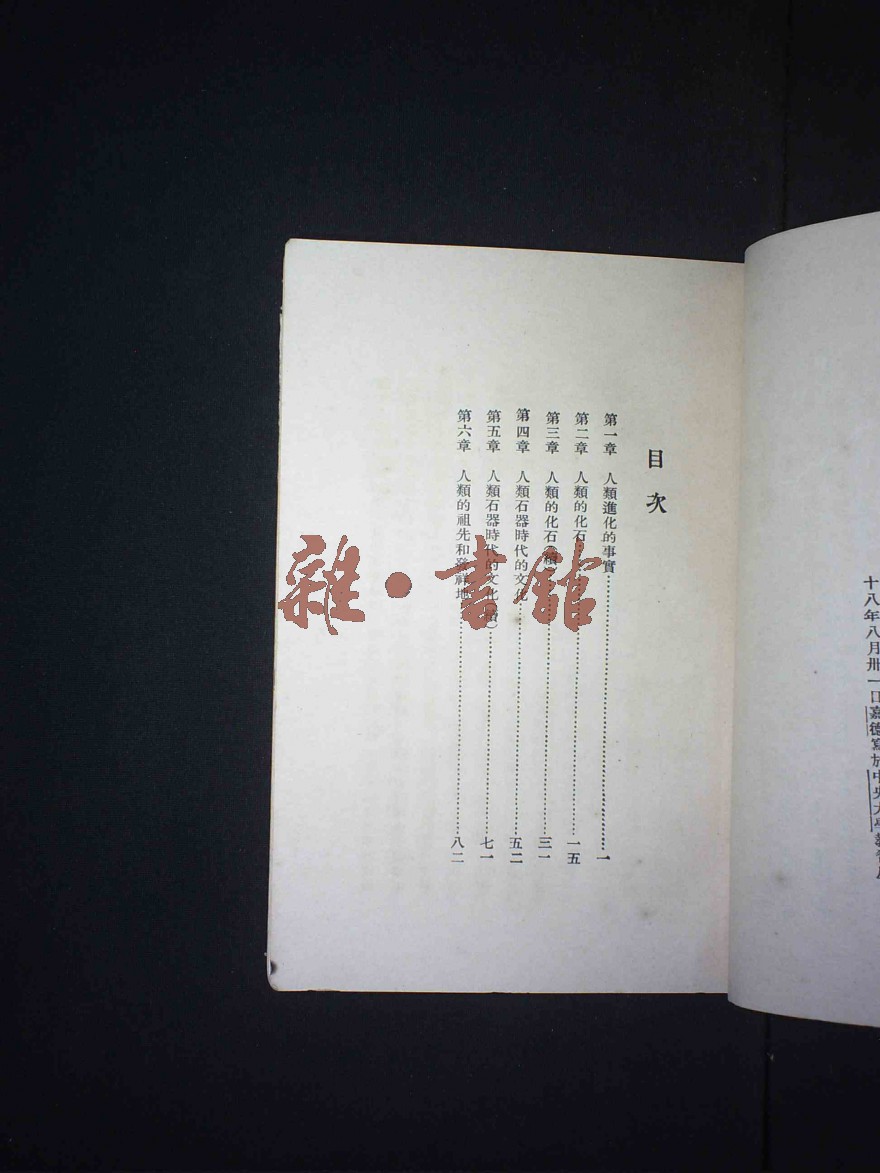 十八年八月卅一日嘉德寫於中央大學
目次
第一章　人類進化的事實……一
第二章　人類的化石……一五
第三章　人類的化石（續）……三一
第四章　人類石器時代的文化……五二
第五章　人類石器時代的文化（續）……七一
第六章　人類的祖先和發祥地……八二
雜·書館